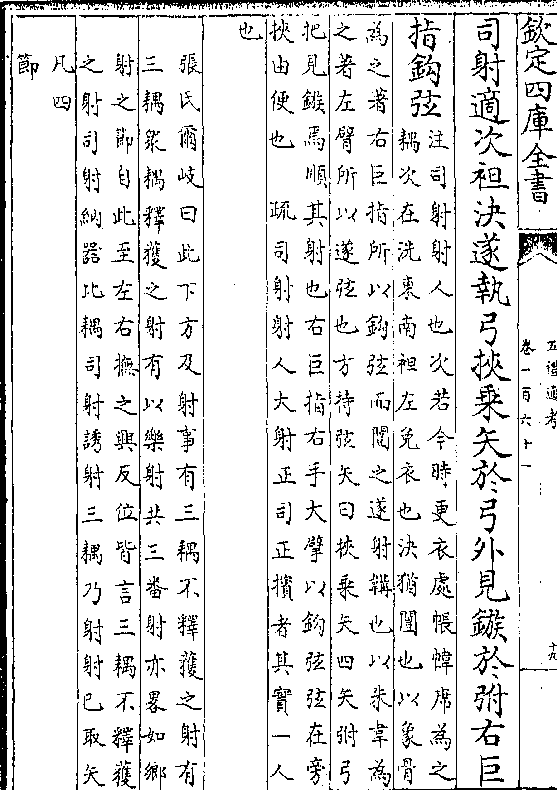 欽定四庫全書
五禮通考
卷一百六十一
十九
司射適次袒決遂執弓挾乗矢於弓外見鏃於弣右巨
指鈎弦
注司射射人也次若今時更衣處帳幃席為之
耦次在洗東南袒左免衣也決猶闓也以象骨
為之著右巨指所以鈎弦而闓之遂射韝也以朱韋為
之著左臂所以遂弦也方持弦矢曰挾乗矢四矢弣弓
把見鏃焉順其射也右巨指右手大擘以鈎弦弦在旁
挾由便也　疏司射射人大射正司正擯者其實一人
也
張氏爾岐曰此下方及射事有三耦不釋獲之射有
三耦衆耦釋獲之射有以樂射共三番射亦畧如鄉
射之節自此至左右撫之興反位皆言三耦不釋獲
之射司射納器比耦司射誘射三耦乃射射已取矢
凡四
節